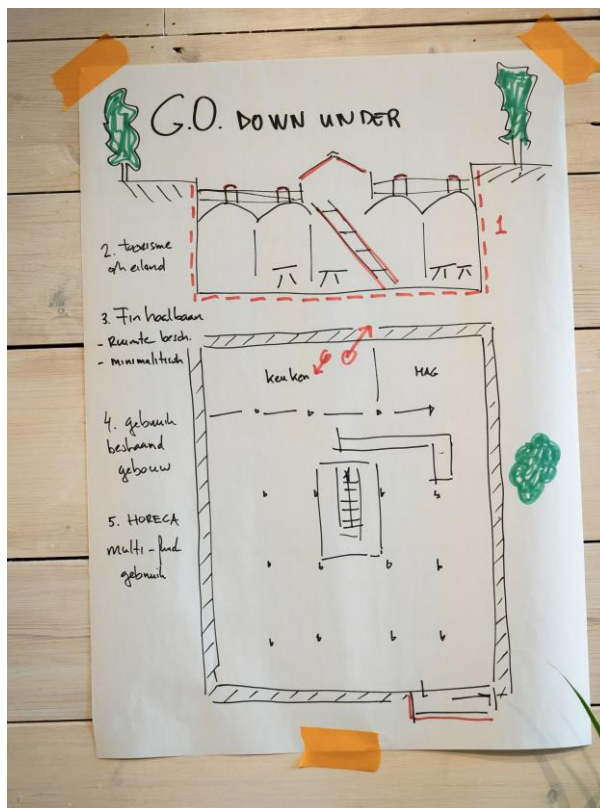 G.O. DOWN UNDER
1
2. toerisme
op eiland
3. Fin haalbaar
- Ruimte besch.
- minimalistisch
keuken
MAG
4. gebruik
bestaand
gebouw
5. HORECA
multi-funct
gebruik